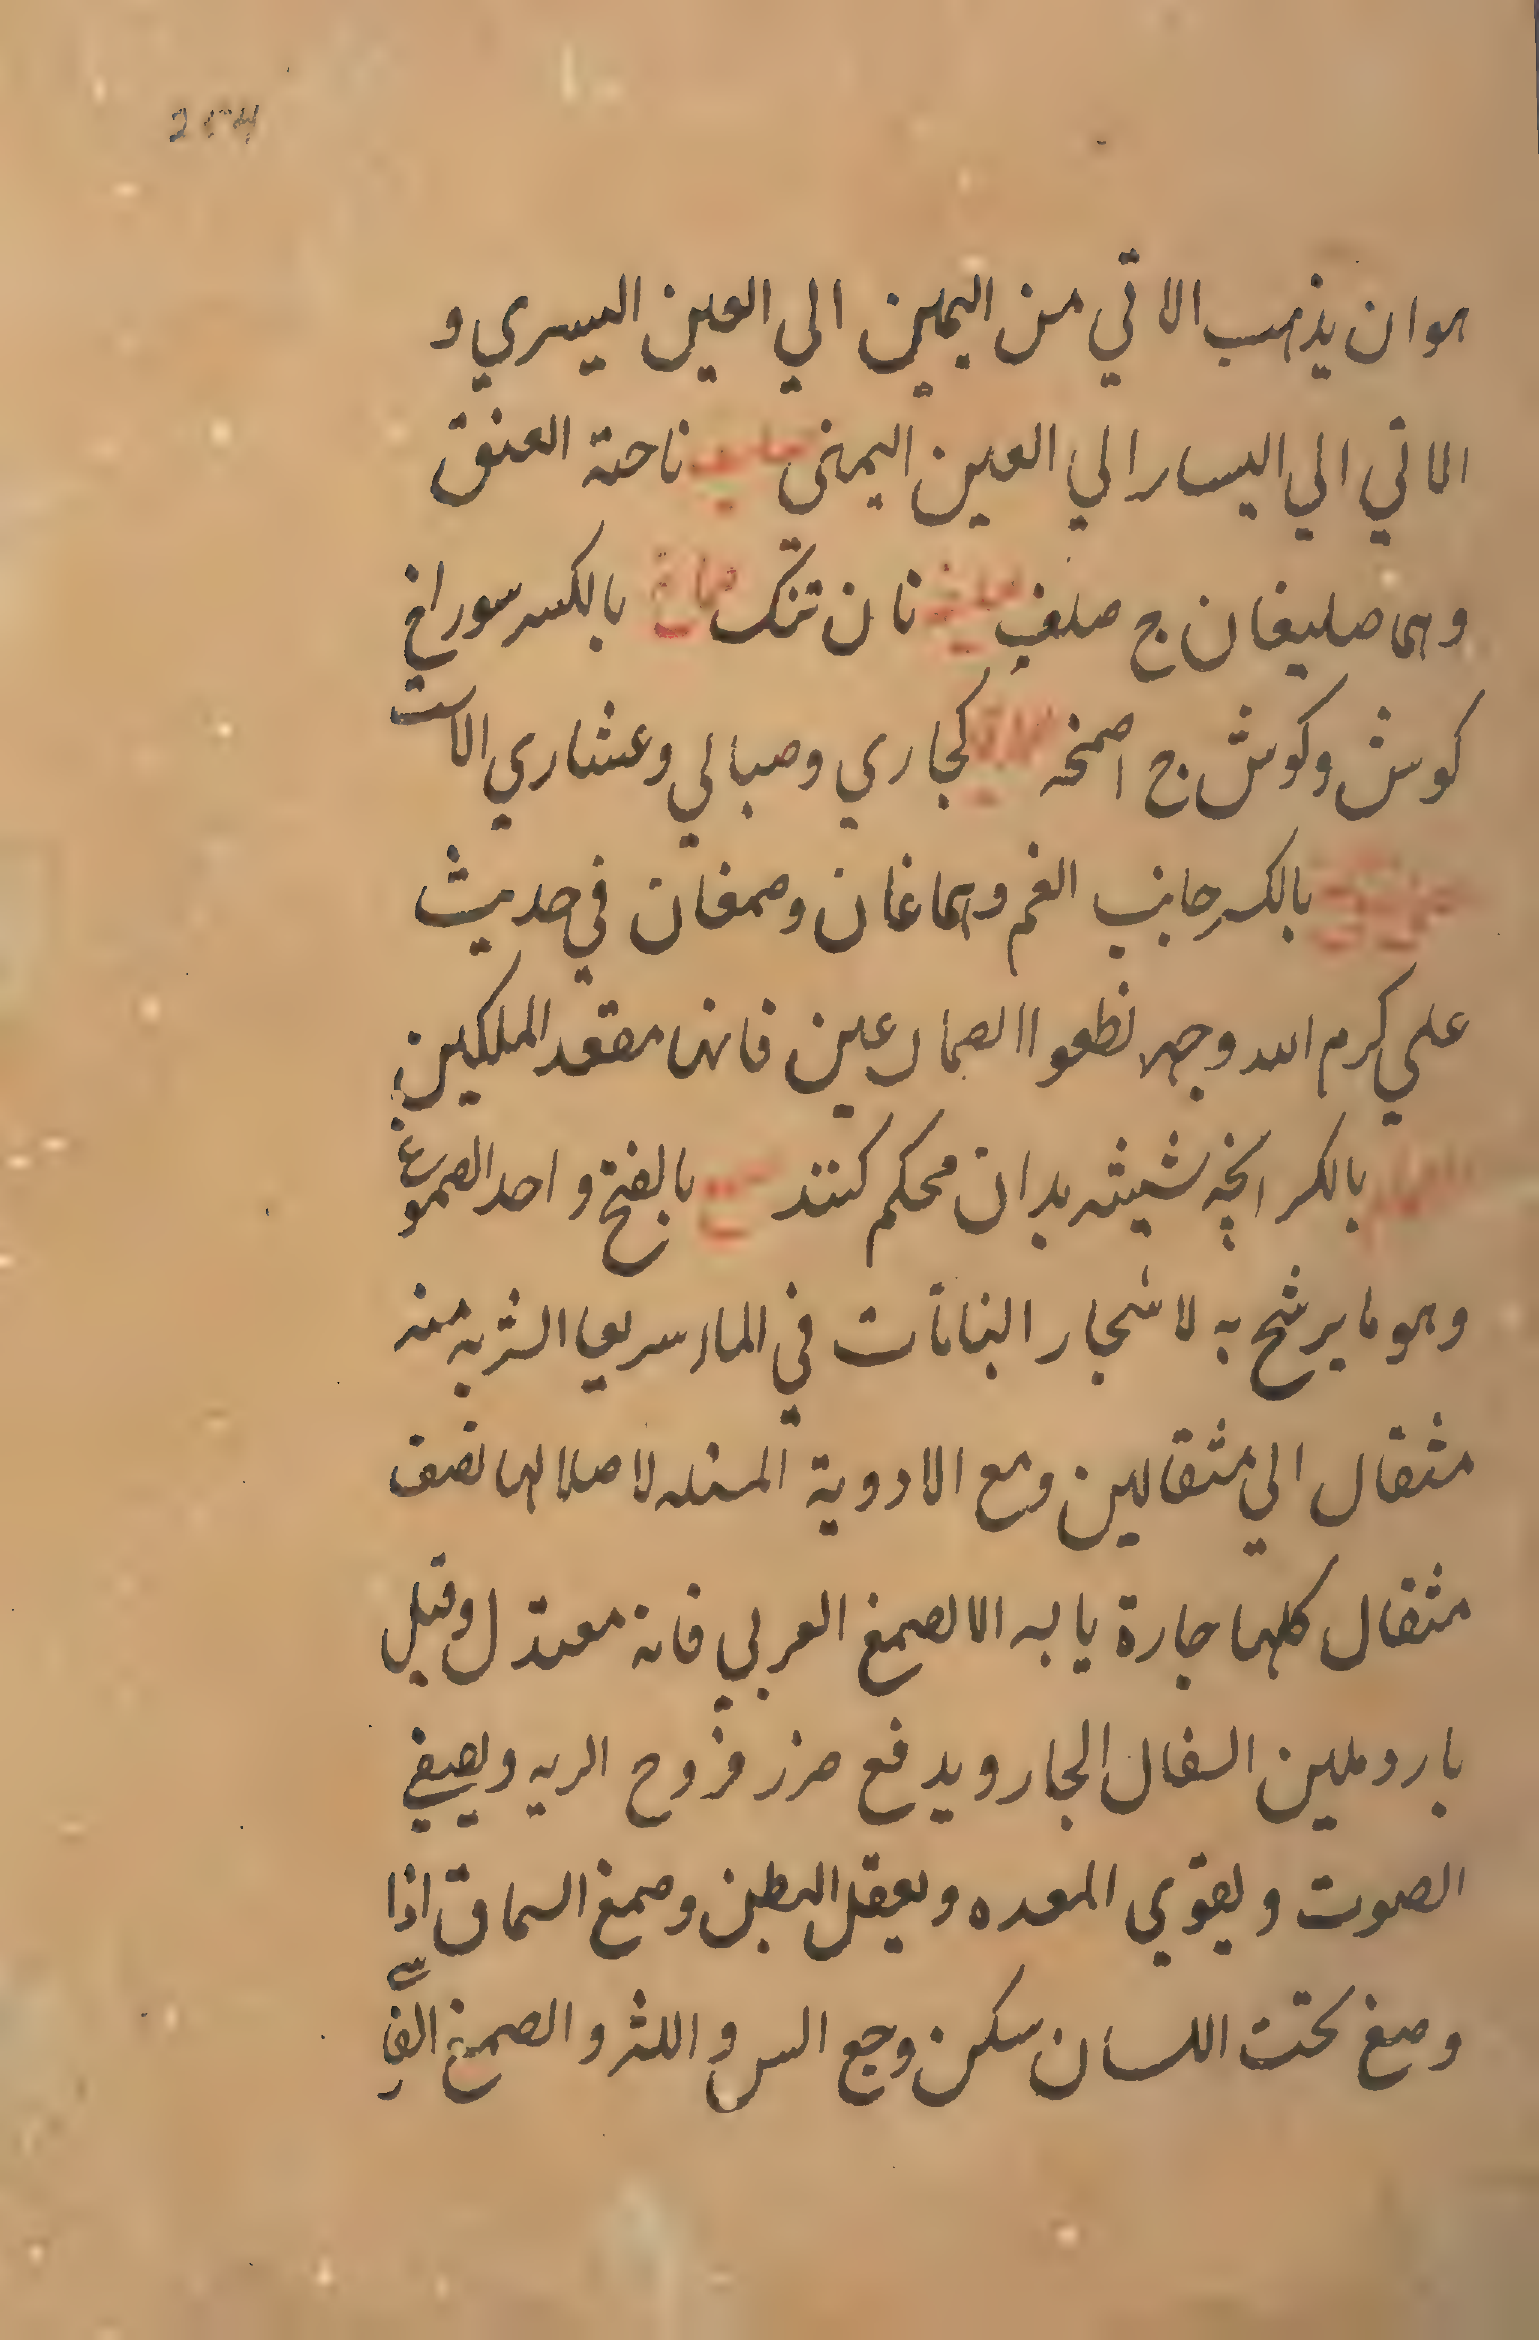 هوان يذهب الاتي من اليمين الي العين اليسري و
الاتي الي اليسار الي العين اليمنى صليف ناحتة العنق
وهما صليفان ج صلف نان تنك صماخ بالكسر سوراخ
كوش وكوش ج اصمخه كجاري وصبالي وعشاري الاست
بالكسر جانب الغم وهما غان وصمغان في حديث
علي كرم الله وجهه نطعوا الصماعين فانها مقعد الملكين
بالكر انچه شيشه بدان محكم كنند صمغ بالفتح واحد الصموغ
وهو ما يرشح به لاشجار النباتات في الماء سريعا الشربه منه
مثقال الي مثقالين ومع الادوية المسهله لاصلالها نصف
مثقال كلها جارة يابه الا لصمغ العربي فانه معتدل وقيل
بارد وملين السفال الجار ويدفع ضرر قروح الريه ويصفي
الصوت ويقوي المعده ويعقل البطن وصمغ السماق اذا
وضغ تحت اللسان سكن وجع الس و اللثه و الصمغ الفا